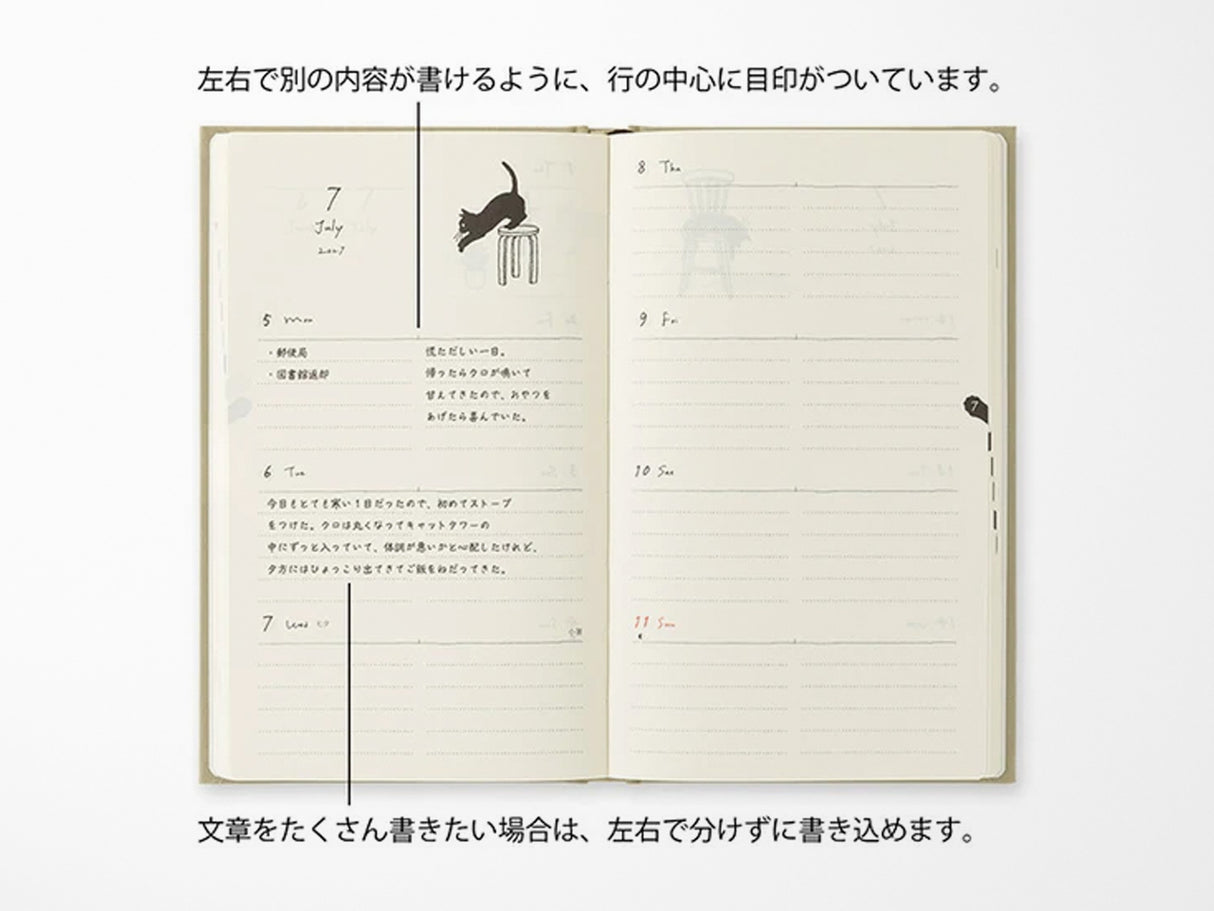 左右で別の内容が書けるように、行の中心に目印がついています。
7
July
2027
5 Mon
・郵便局
・図書館返却
慌ただしい一日。
帰ったらクロが鳴いて
甘えてきたので、おやつを
あげたら喜んでいた。
6 Tue
今日もとても寒い1日だったので、初めてストーブ
をつけた。クロは丸くなってキャットタワーの
中にずっと入っていて、体調が悪いかと心配したけれど、
夕方にはひょっこり出てきてご飯をねだってきた。
7 Wed
小暑
8 Thu
9 Fri
10 Sat
11 Sun
7
文章をたくさん書きたい場合は、左右で分けずに書き込めます。